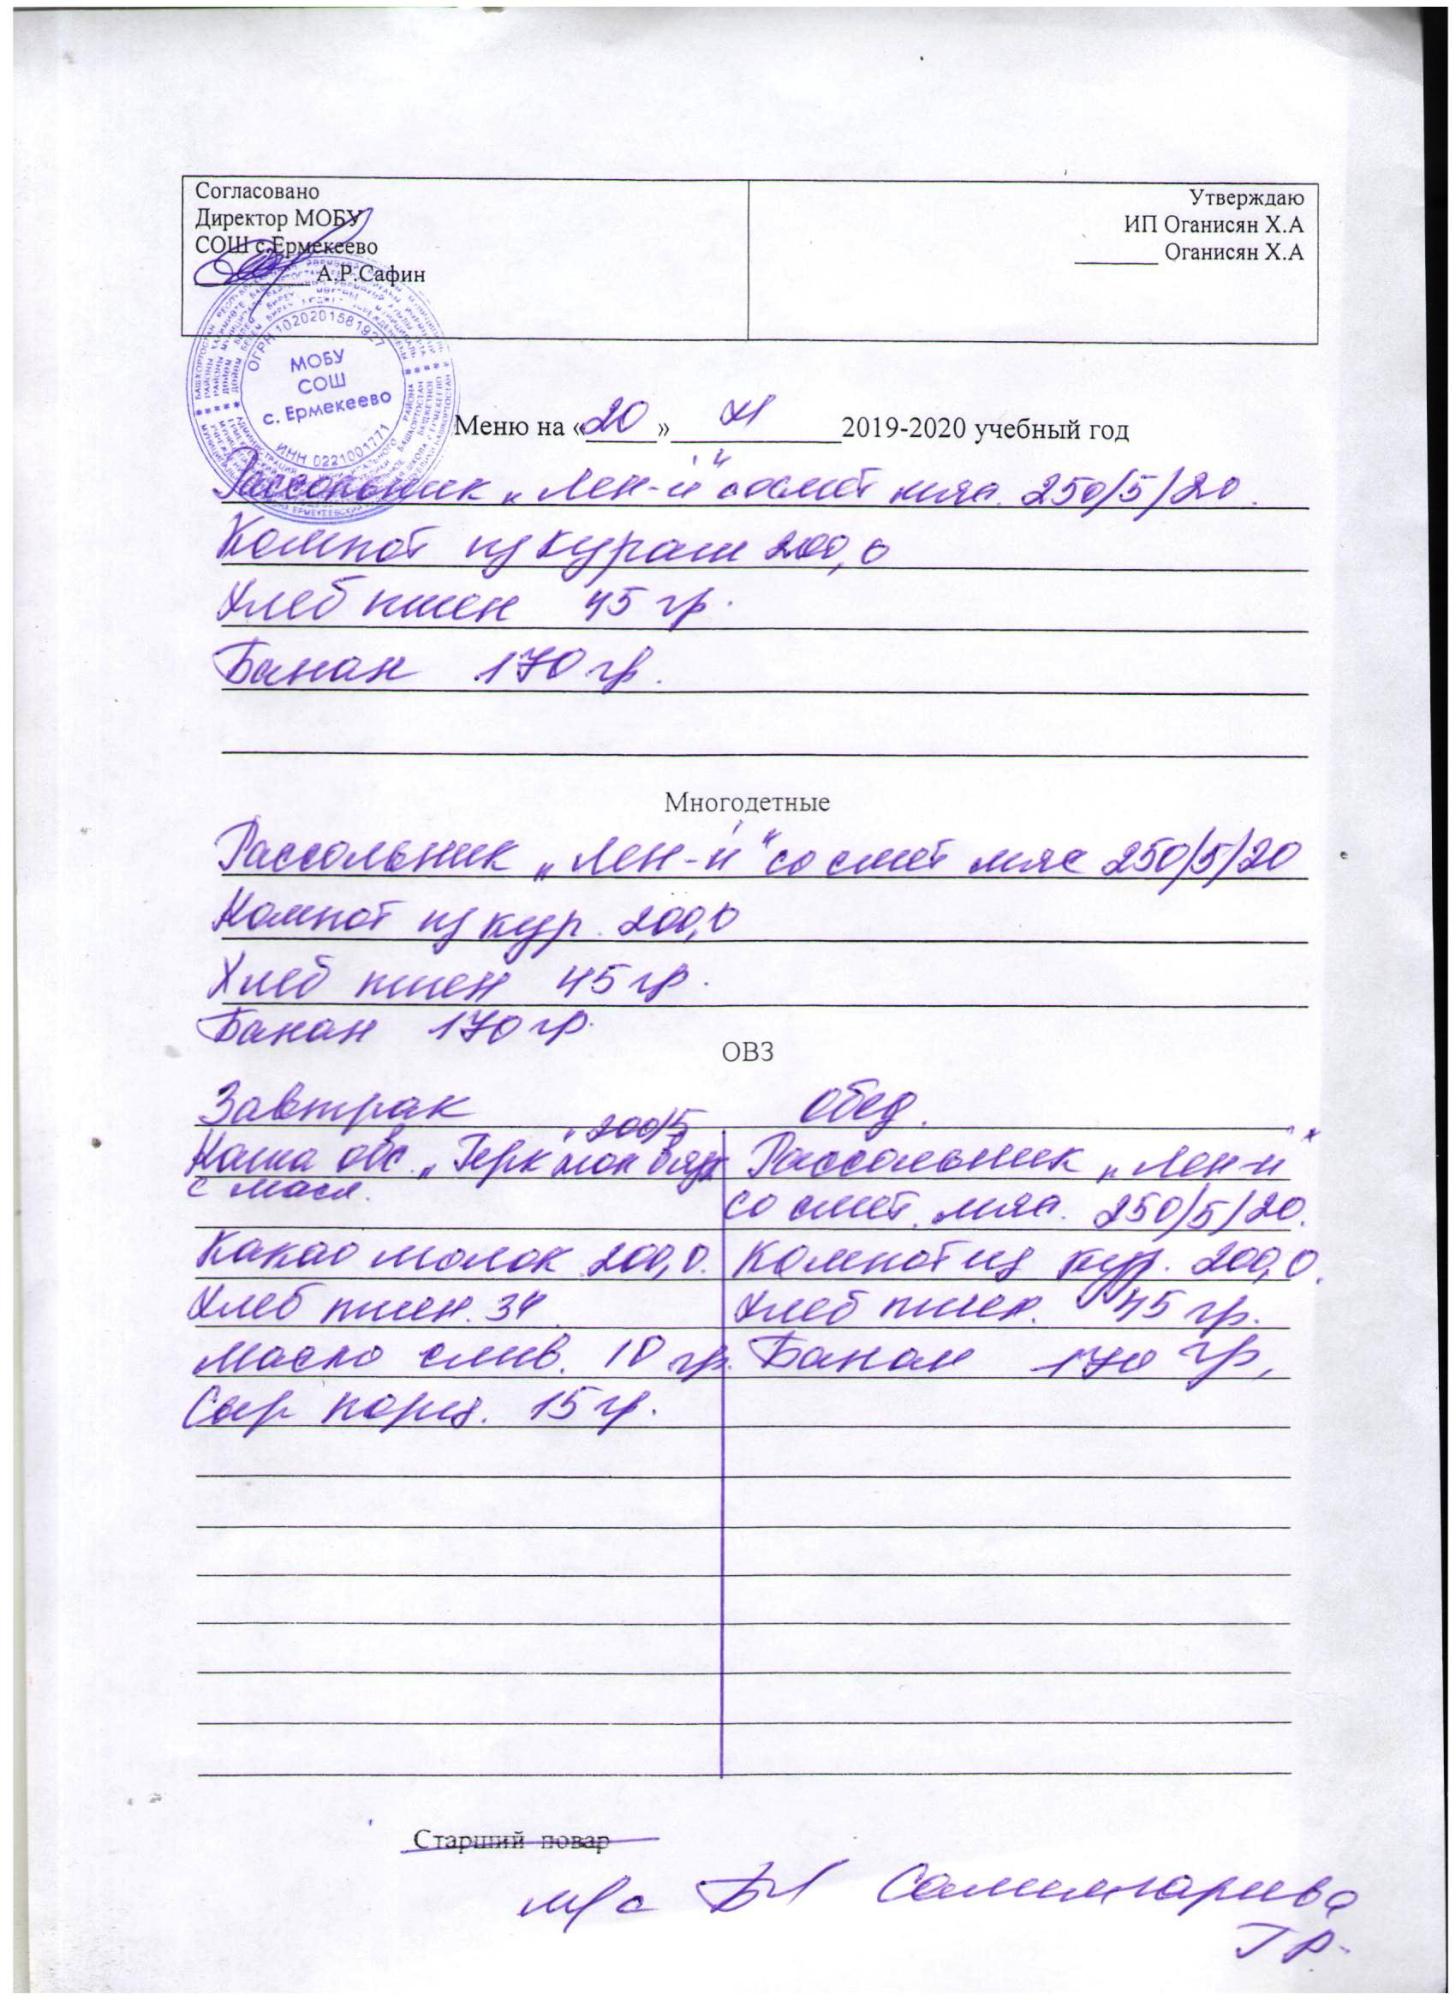 Согласовано
Директор МОБУ
СОШ с.Ермекеево
А.Р.Сафин
Утверждаю
ИП Оганисян Х.А
Оганисян Х.А
ОГРН 1020201581927
МОБУ
СОШ
с. Ермекеево
ИНН 0221001771
Меню на «20» XI 2019-2020 учебный год
Рассольник „Лен-й" со смет мяс. 250/5/20.
Компот из кураги 200,0
Хлеб пшен 45 гр.
Банан 170 гр.
Многодетные
Рассольник „Лен-й" со смет мяс 250/5/20
Компот из кур. 200,0
Хлеб пшен 45 гр.
Банан 170 гр.
ОВЗ
Завтрак
Каша овс. „Герк" мол вязк 200/5
с масл.
Какао молок 200,0.
Хлеб пшен. 34
Масло слив. 10 гр.
Сыр порц. 15 гр.
Обед.
Рассольник „Лен-й"
со смет. мяс. 250/5/20.
Компот из кур. 200,0.
Хлеб пшен. 45 гр.
Банан 170 гр,
Старший повар
м/с Салимгариева
Г Р.